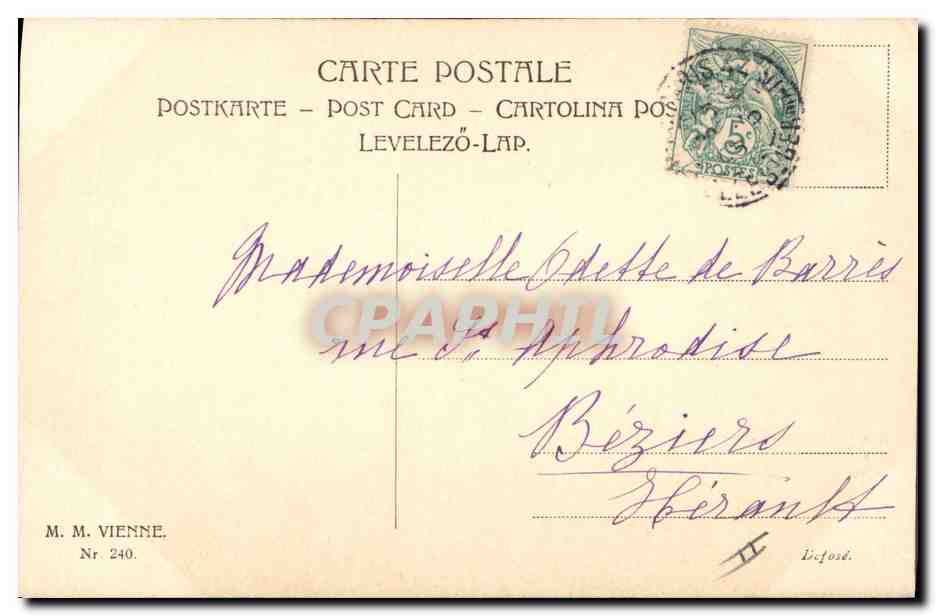 CARTE POSTALE
POSTKARTE – POST CARD – CARTOLINA POS
LEVELEZŐ-LAP.
5c
POSTES
Mademoiselle Odette de Barrès
CPAPHIL
rue St Aphrodise
Béziers
Hérault
M. M. VIENNE.
Nr. 240.
Déposé.